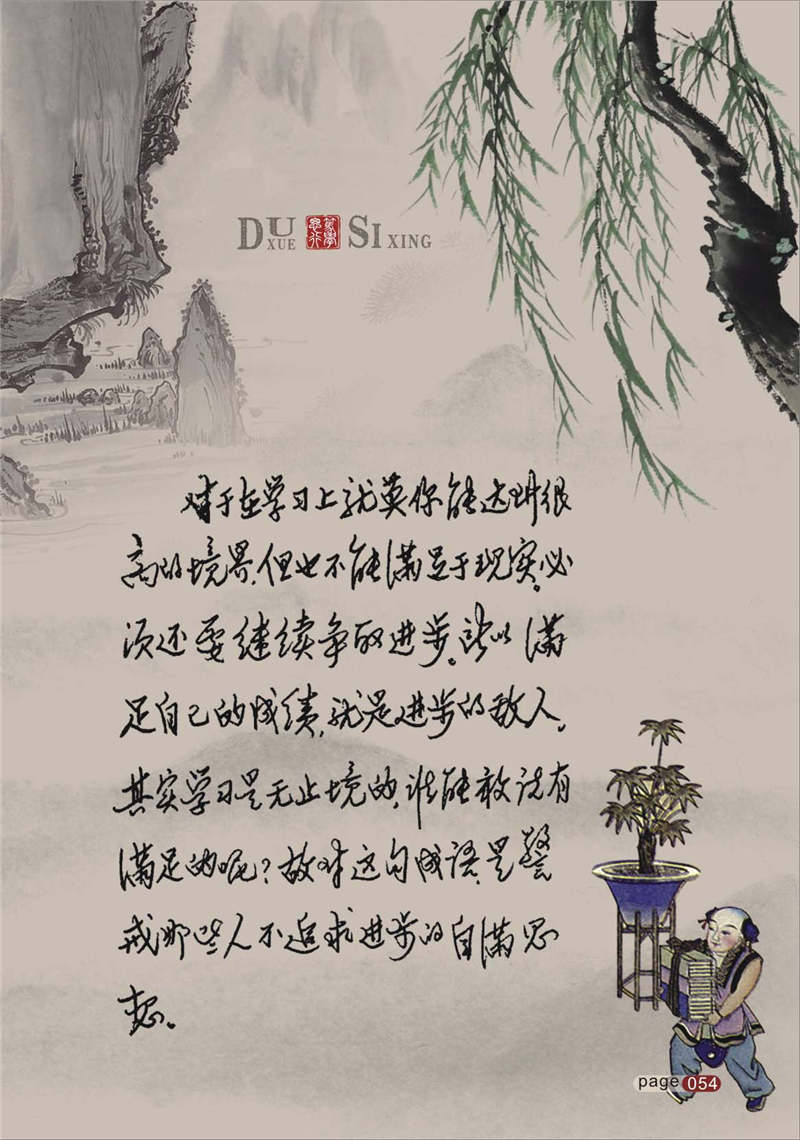 DU XUE 笃学 思行 SI XING
对于在学习上就算你能达到很
高的境界,但也不能满足于现实。必
须还要继续争取进步。所以满
足自己的成绩,就是进步的敌人。
其实学习是无止境的,谁能敢说有
满足的呢?故对这句成语,是警
戒那些人不追求进步的自满思
想。
page 054